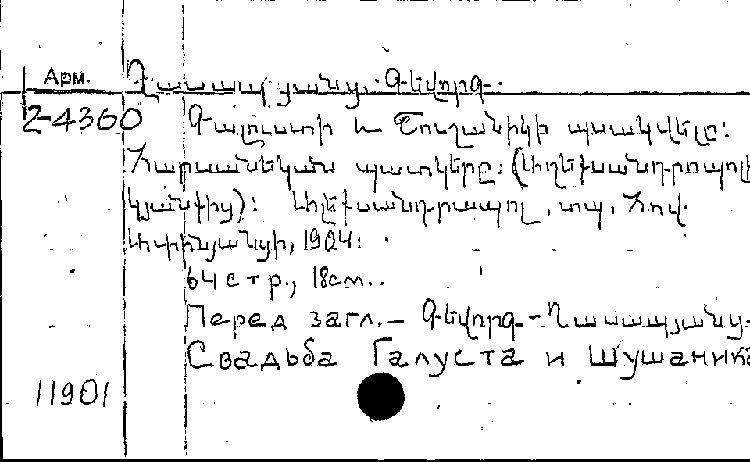 Арм. Ղասապյանց, Գեվորգ.
2-4360 Գալուստի և Շուշանիկի պսակվելը:
Հարսանեկան պատկերը: (Ալեքսանդրապոլի
կյանքից): Ալեքսանդրապոլ, տպ. Հով.
1904:
64 стр., 18см..
Перед загл.– Գեվորգ Ղասապյանց.
Свадьба Галуста и Шушаника
11901